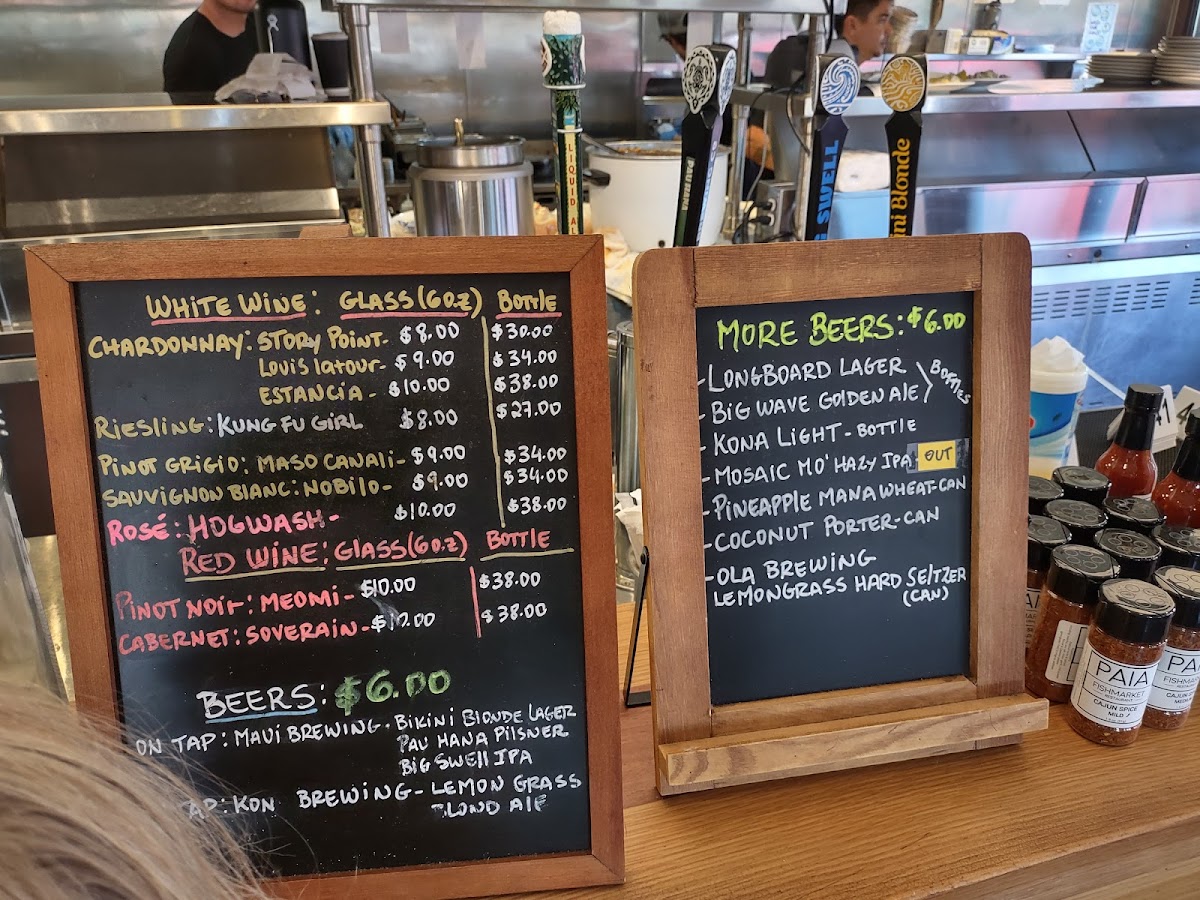 WHITE WINE: GLASS (6 O.Z) BOTTLE
CHARDONNAY: STORY POINT- $8.00 $30.00
LOUIS LATOUR- $9.00 $34.00
ESTANCIA - $10.00 $38.00
RIESLING: KUNG FU GIRL $8.00 $27.00
PINOT GRIGIO: MASO CANALI- $9.00 $34.00
SAUVIGNON BLANC: NOBILO- $9.00 $34.00
ROSÉ: HOGWASH- $10.00 $38.00
RED WINE: GLASS (6 O.Z) BOTTLE
PINOT NOIR: MEOMI- $10.00 $38.00
CABERNET: SOVERAIN- $10.00 $38.00
BEERS: $6.00
ON TAP: MAUI BREWING. BIKINI BLONDE LAGER
PAU HANA PILSNER
BIG SWELL IPA
AP: KON BREWING- LEMON GRASS
BLOND ALE
MORE BEERS: $6.00
-LONGBOARD LAGER
- BIG WAVE GOLDEN ALE BOTTLES
- KONA LIGHT - BOTTLE
- MOSAIC MO' HAZY IPA OUT
- PINEAPPLE MANA WHEAT-CAN
- COCONUT PORTER-CAN
- OLA BREWING
LEMONGRASS HARD SELTZER
(CAN)
LIQUID A
SWELL
ini Blonde
PAIA
FISHMARKET
RESTAURANT
CAJUN SPICE
MILD
PAIA
FISHMARKET
CAJUN